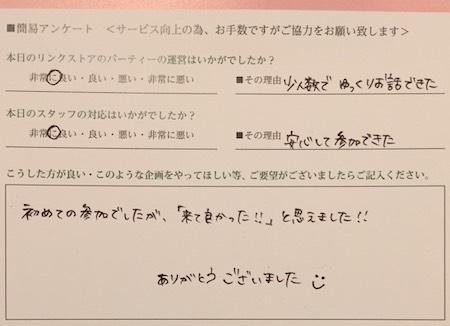 ■簡易アンケート <サービス向上の為、お手数ですがご協力をお願い致します>
本日のリンクストアのパーティーの運営はいかがでしたか？
非常に良い・良い・悪い・非常に悪い ■その理由 少人数で ゆっくりお話できた
本日のスタッフの対応はいかがでしたか？
非常に良い・良い・悪い・非常に悪い ■その理由 安心して参加できた
こうした方が良い・このような企画をやってほしい等、ご要望がございましたらご記入ください。
初めての参加でしたが、「来て良かった!!」と思えました!!
ありがとうございました